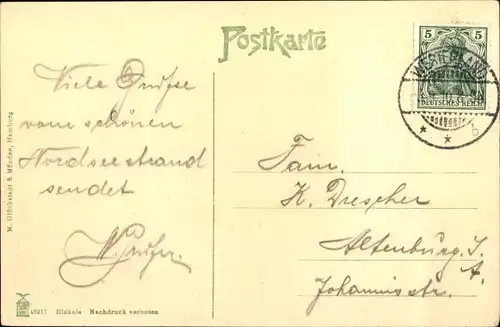 Postkarte
5 5
WESTERLAND
DEUTSCHES REICH
* * b
Viele Grüsse
vom schönen
Nordseestrand
sendet
Fam.
K. Drescher
Altenburg S.
A.
Johannisstr.
M. Glückstadt & Münden, Hamburg
Diskale Nachdruck verboten